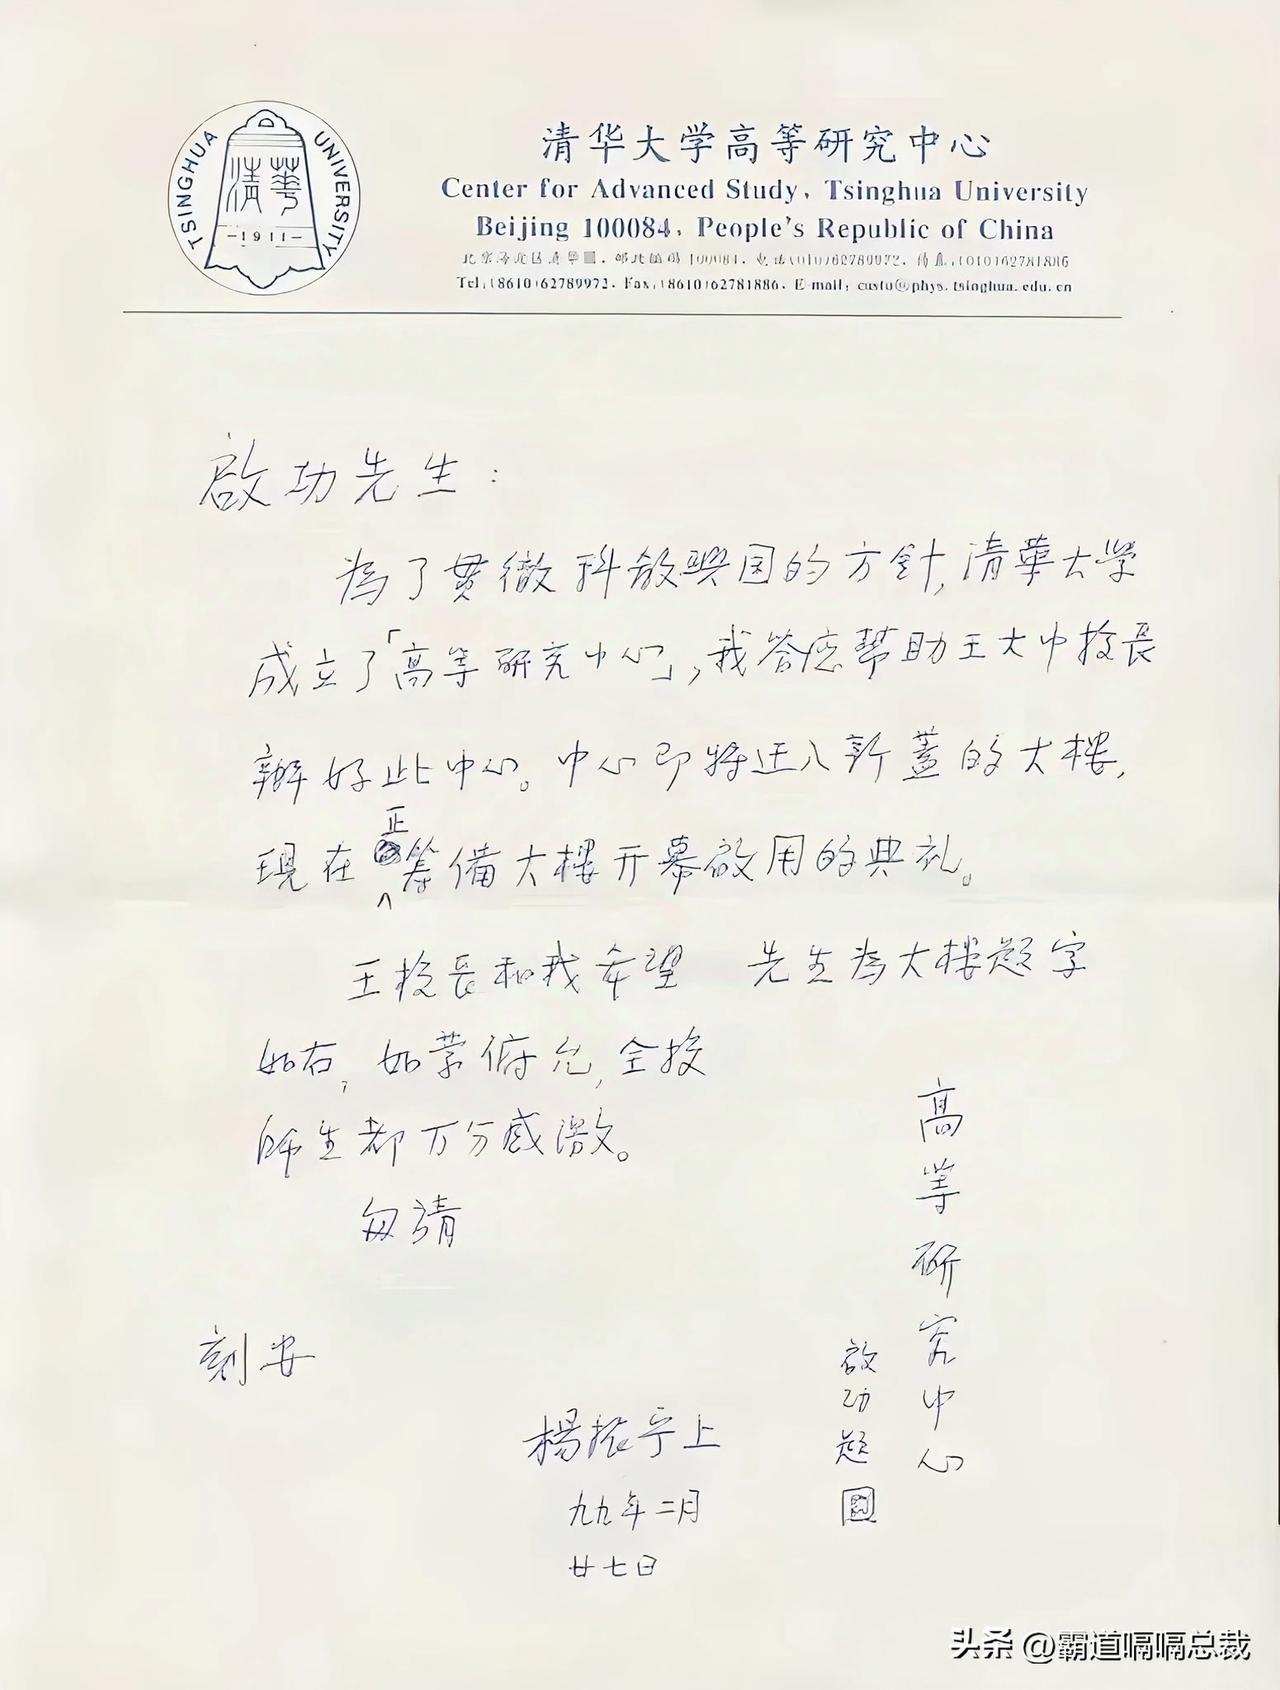 TSINGHUA UNIVERSITY
清華
-1911-
清华大学高等研究中心
Center for Advanced Study, Tsinghua University
Beijing 100084, People's Republic of China
北京海淀区清华园, 邮政编码 100084, 电话:(010)62789972, 传真:(010)62781886
Tel:(8610)62789972, Fax:(8610)62781886, E-mail: castu@phys.tsinghua.edu.cn
啟功先生:
為了貫徹科教興国的方針,清華大学
成立了「高等研究中心」,我答应幫助王大中校長
辦好此中心。中心即將迁入新蓋的大楼,
現在正籌備大楼开幕啟用的典礼。
王校長和我希望 先生為大楼题字
如右,如蒙俯允,全校
师生都万分感激。
匆請
刻安
楊振宁上
九九年二月
廿七日
高等研究中心
啟功题
头条 @霸道嗝嗝总裁